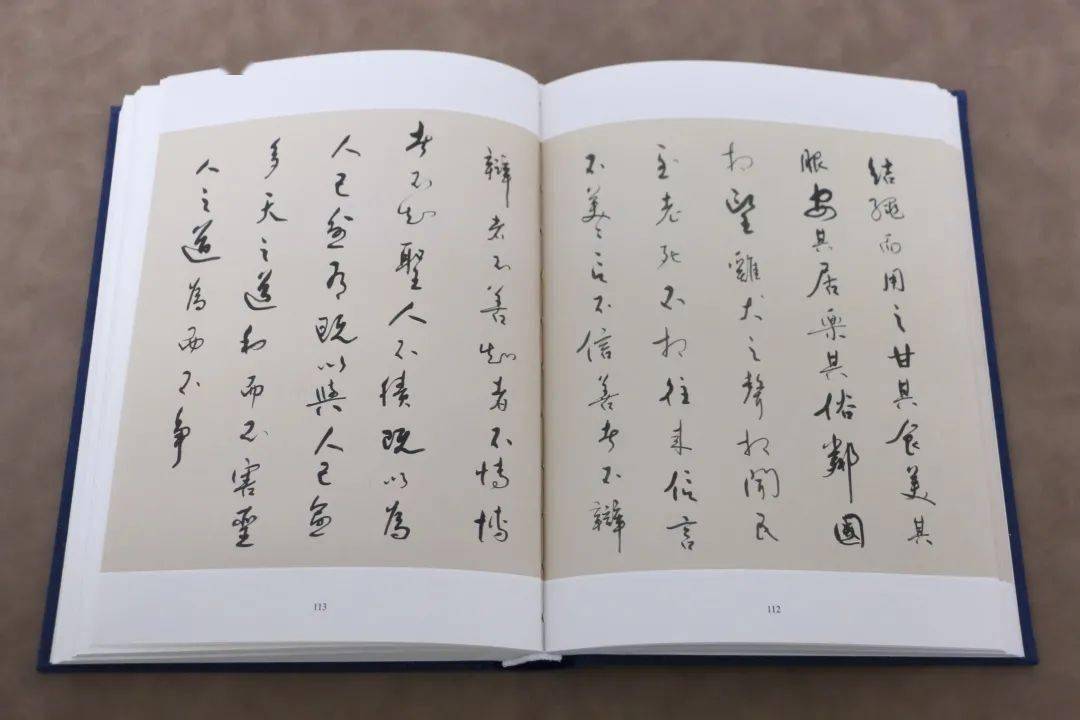 結繩而用之甘其食美其
服安其居樂其俗鄰國
相望雞犬之聲相聞民
至老死不相往来信言
不美〻言不信善者不辯
112
辯者不善知者不博博
者不知聖人不積既以為
人己愈有既以與人己愈
多天之道利而不害聖
人之道為而不争
113